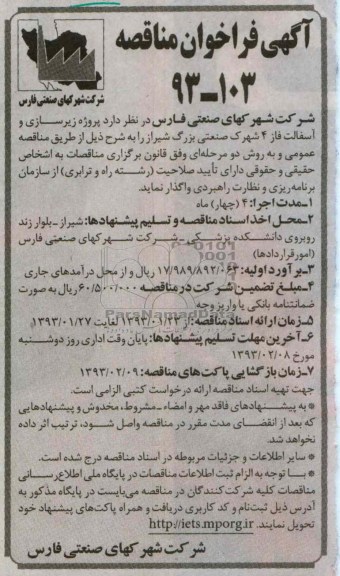 آگهی فراخوان مناقصه
۹۳-۱۰۳
شرکت شهرکهای صنعتی فارس
شرکت شهرکهای صنعتی فارس در نظر دارد پروژه زیرسازی و
آسفالت فاز ۴ شهرک صنعتی بزرگ شیراز را به شرح ذیل از طریق مناقصه
عمومی و به روش دو مرحله‌ای وفق قانون برگزاری مناقصات به اشخاص
حقیقی و حقوقی دارای تأیید صلاحیت (رشته راه و ترابری) از سازمان
برنامه‌ریزی و نظارت راهبردی واگذار نماید.
۱-مدت اجرا: ۴ (چهار) ماه
۲-محل اخذ اسناد مناقصه و تسلیم پیشنهادها: شیراز-بلوار زند
روبروی دانشکده پزشکی-شرکت شهرکهای صنعتی فارس
(امور قراردادها)
۳-برآورد اولیه: ۱۷/۹۸۹/۸۹۲/۰۶۳ ریال و از محل درآمدهای جاری
۴-مبلغ تضمین شرکت در مناقصه ۶۰/۵۰۰/۰۰۰ ریال به صورت
ضمانتنامه بانکی یا واریز وجه
۵-زمان ارائه اسناد مناقصه: از ۱۳۹۳/۰۱/۲۳ لغایت ۱۳۹۳/۰۱/۲۷
۶-آخرین مهلت تسلیم پیشنهادها: پایان وقت اداری روز دوشنبه
مورخ ۱۳۹۳/۰۲/۰۸
۷-زمان بازگشایی پاکت‌های مناقصه: ۱۳۹۳/۰۲/۰۹
جهت تهیه اسناد مناقصه ارائه درخواست کتبی الزامی است.
* به پیشنهادهای فاقد مهر و امضاء-مشروط، مخدوش و پیشنهادهایی
که بعد از انقضای مدت مقرر در مناقصه واصل شود، ترتیب اثر داده
نخواهد شد.
* سایر اطلاعات و جزئیات مربوطه در اسناد مناقصه درج شده است.
* با توجه به الزام ثبت اطلاعات مناقصات در پایگاه ملی اطلاع‌رسانی
مناقصات کلیه شرکت‌کنندگان در مناقصه می‌بایست در پایگاه مذکور به
آدرس ذیل ثبت‌نام و کد کاربری دریافت و همراه پاکت‌های پیشنهاد خود
تحویل نمایند. http://iets.mporg.ir
شرکت شهرکهای صنعتی فارس